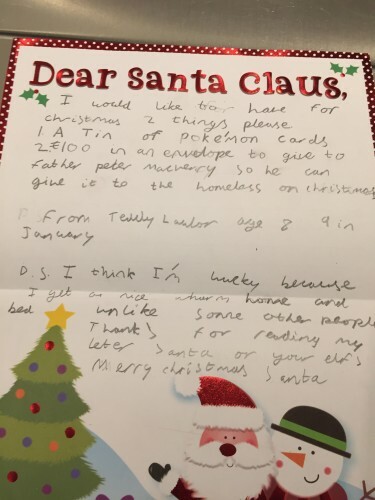 Dear Santa Claus,
I would like to have for
christmas 2 things please
1 A Tin of Poké'mon cards
2 €100 in an envelope to give to
Father peter macverry so he can
give it to the homeless on christmas
From Teddy Lawlor age 8 9 in
January
D.S. I think I'm lucky because
I get a nice warm home and
bed unlike some other people
Thanks for reading my
leter Santa or your elfs
Merry christmas Santa